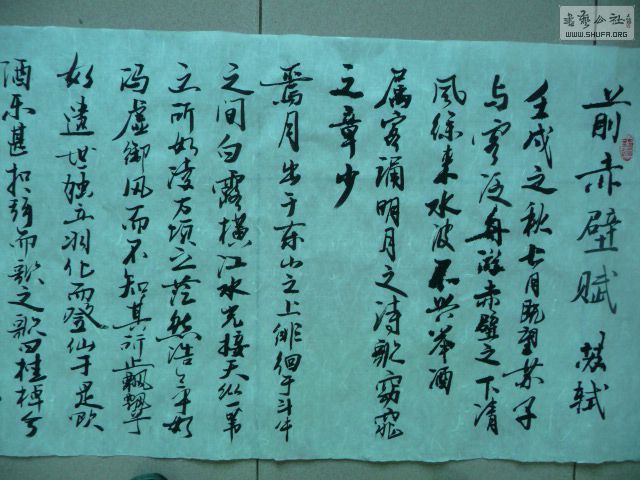 前赤壁赋 苏轼
壬戌之秋七月既望苏子
与客泛舟游赤壁之下清
风徐来水波不兴举酒
属客诵明月之诗歌窈窕
之章少
焉月出于东山之上徘徊于斗牛
之间白露横江水光接天纵一苇
之所如凌万顷之茫然浩乎如
冯虚御风而不知其所止飘飘乎
如遗世独立羽化而登仙于是饮
酒乐甚扣舷而歌之歌曰桂棹兮
书艺公社
WWW.SHUFA.ORG